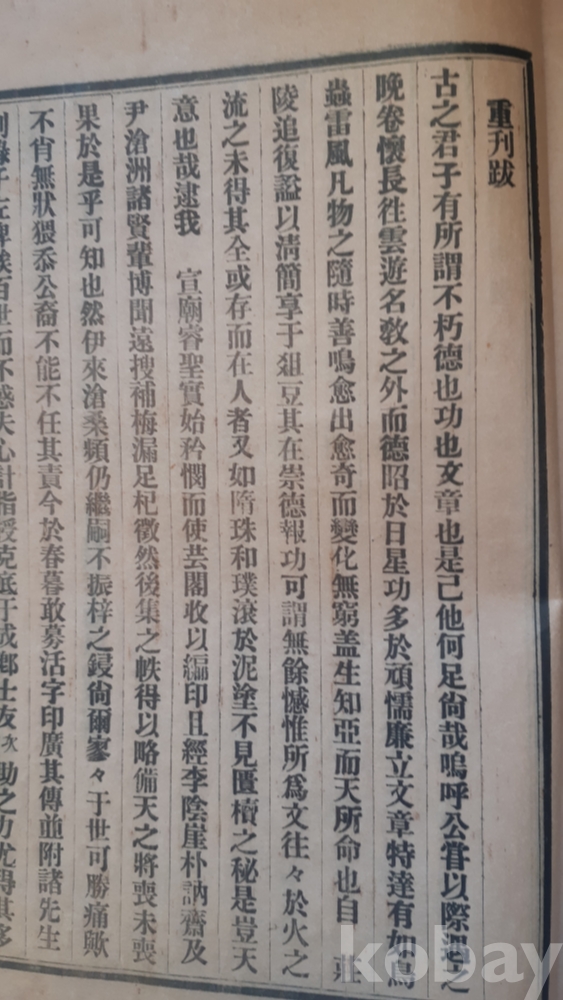 重刊跋
古之君子有所謂不朽德也功也文章也是已他何足尙哉嗚呼公甞以際遇之
晩卷懷長徃雲遊名敎之外而德昭於日星功多於頑懦廉立文章特達有如鳥
蟲雷風凡物之隨時善鳴愈出愈奇而變化無窮盖生知亞而天所命也自 莊
陵追復謚以淸簡享于俎豆其在崇德報功可謂無餘憾惟所爲文往々於火之
流之未得其全或存而在人者又如隋珠和璞滾於泥塗不見匱櫝之秘是豈天
意也哉逮我 宣廟睿聖實始矜憫而使芸閣收以編印且經李陰崖朴訥齋及
尹滄洲諸賢輩博聞遠搜補梅漏足杞徵然後集之帙得以略備天之將喪未喪
果於是乎可知也然伊來滄桑頻仍繼嗣不振梓之鋟尙爾寥々于世可勝痛歟
不肖無狀猥忝公裔不能不任其責今於春暮敢募活字印廣其傳並附諸先生
百世而不惑夫心計指授克底于成鄕士友次 助之力尤得其多
kobay